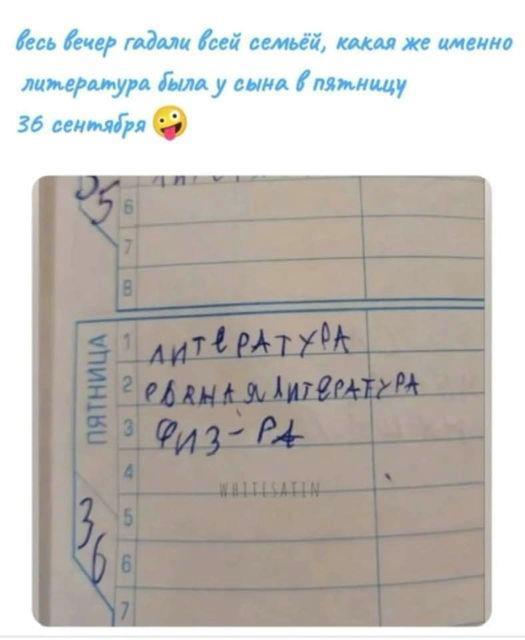 весь вечер гадали всей семьёй, какая же именно
литература была у сына в пятницу
36 сентября 🤪
35
6
7
8
ПЯТНИЦА
1 ЛИТЕРАТУРА
2 РВАНАЯ ЛИТЕРАТУРА
3 ФИЗ-РА
4
WHITESATIN
36
5
6
7